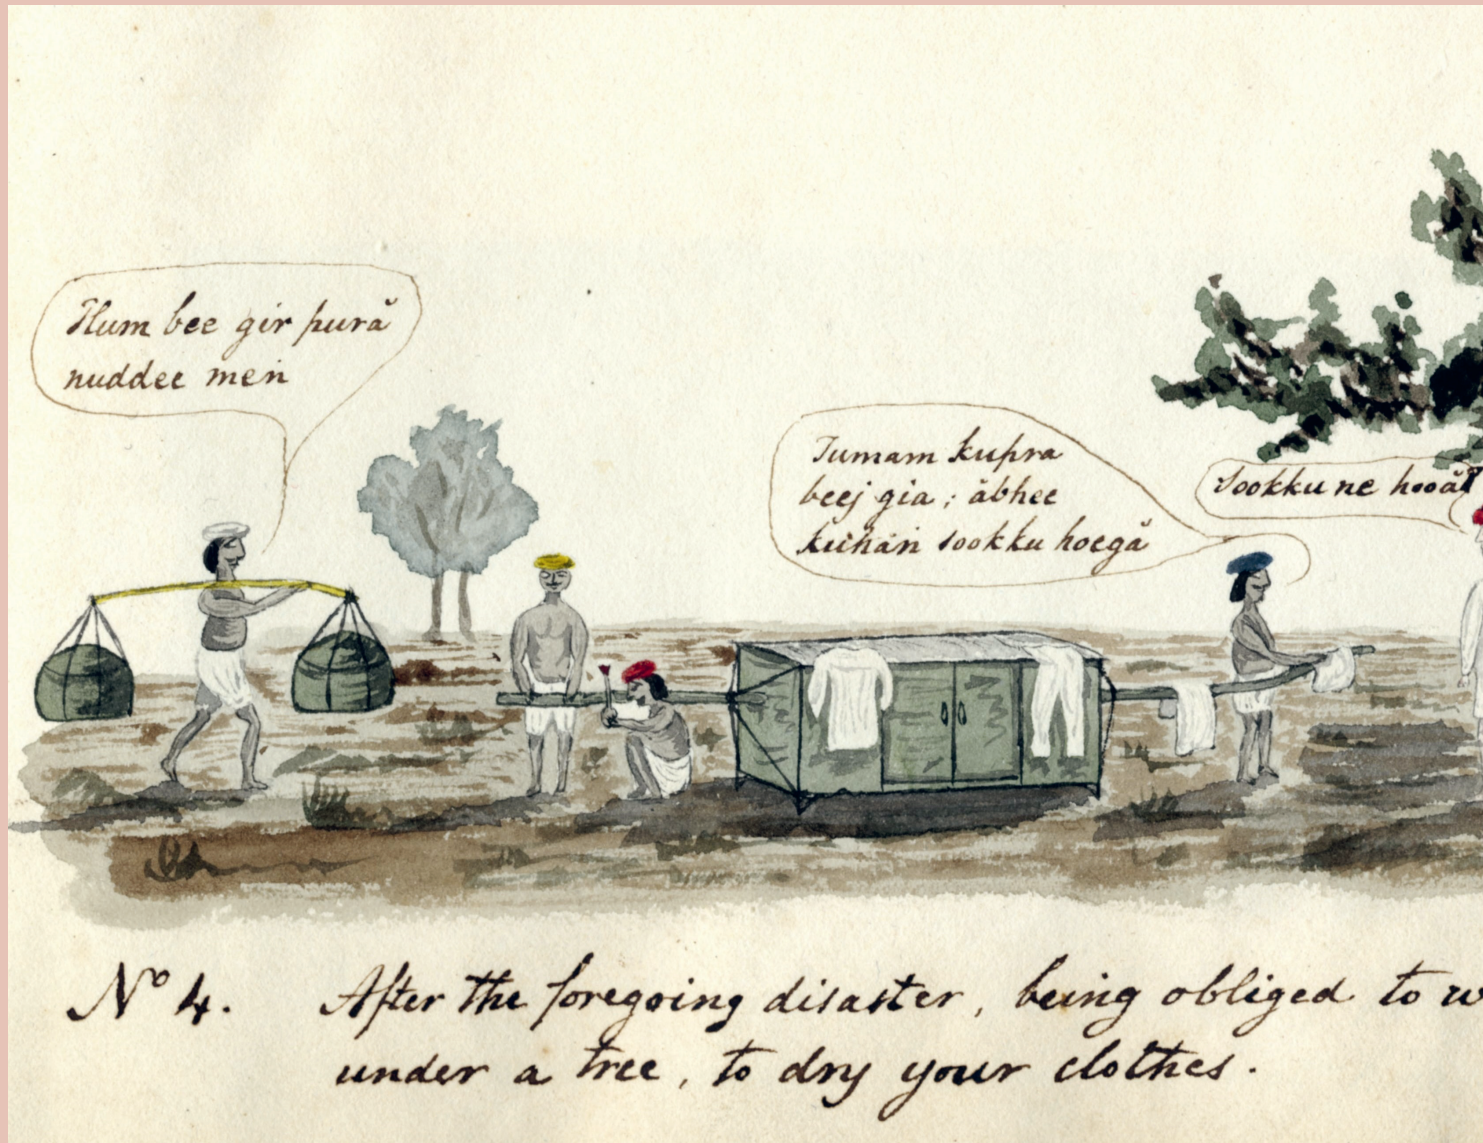 Hum bee gir purā
nuddee men
Tumam kupra
beej gia; ābhee
kuhān sookku hoegā
Sookku ne hooā
No 4. After the foregoing disaster, being obliged to
under a tree, to dry your clothes.